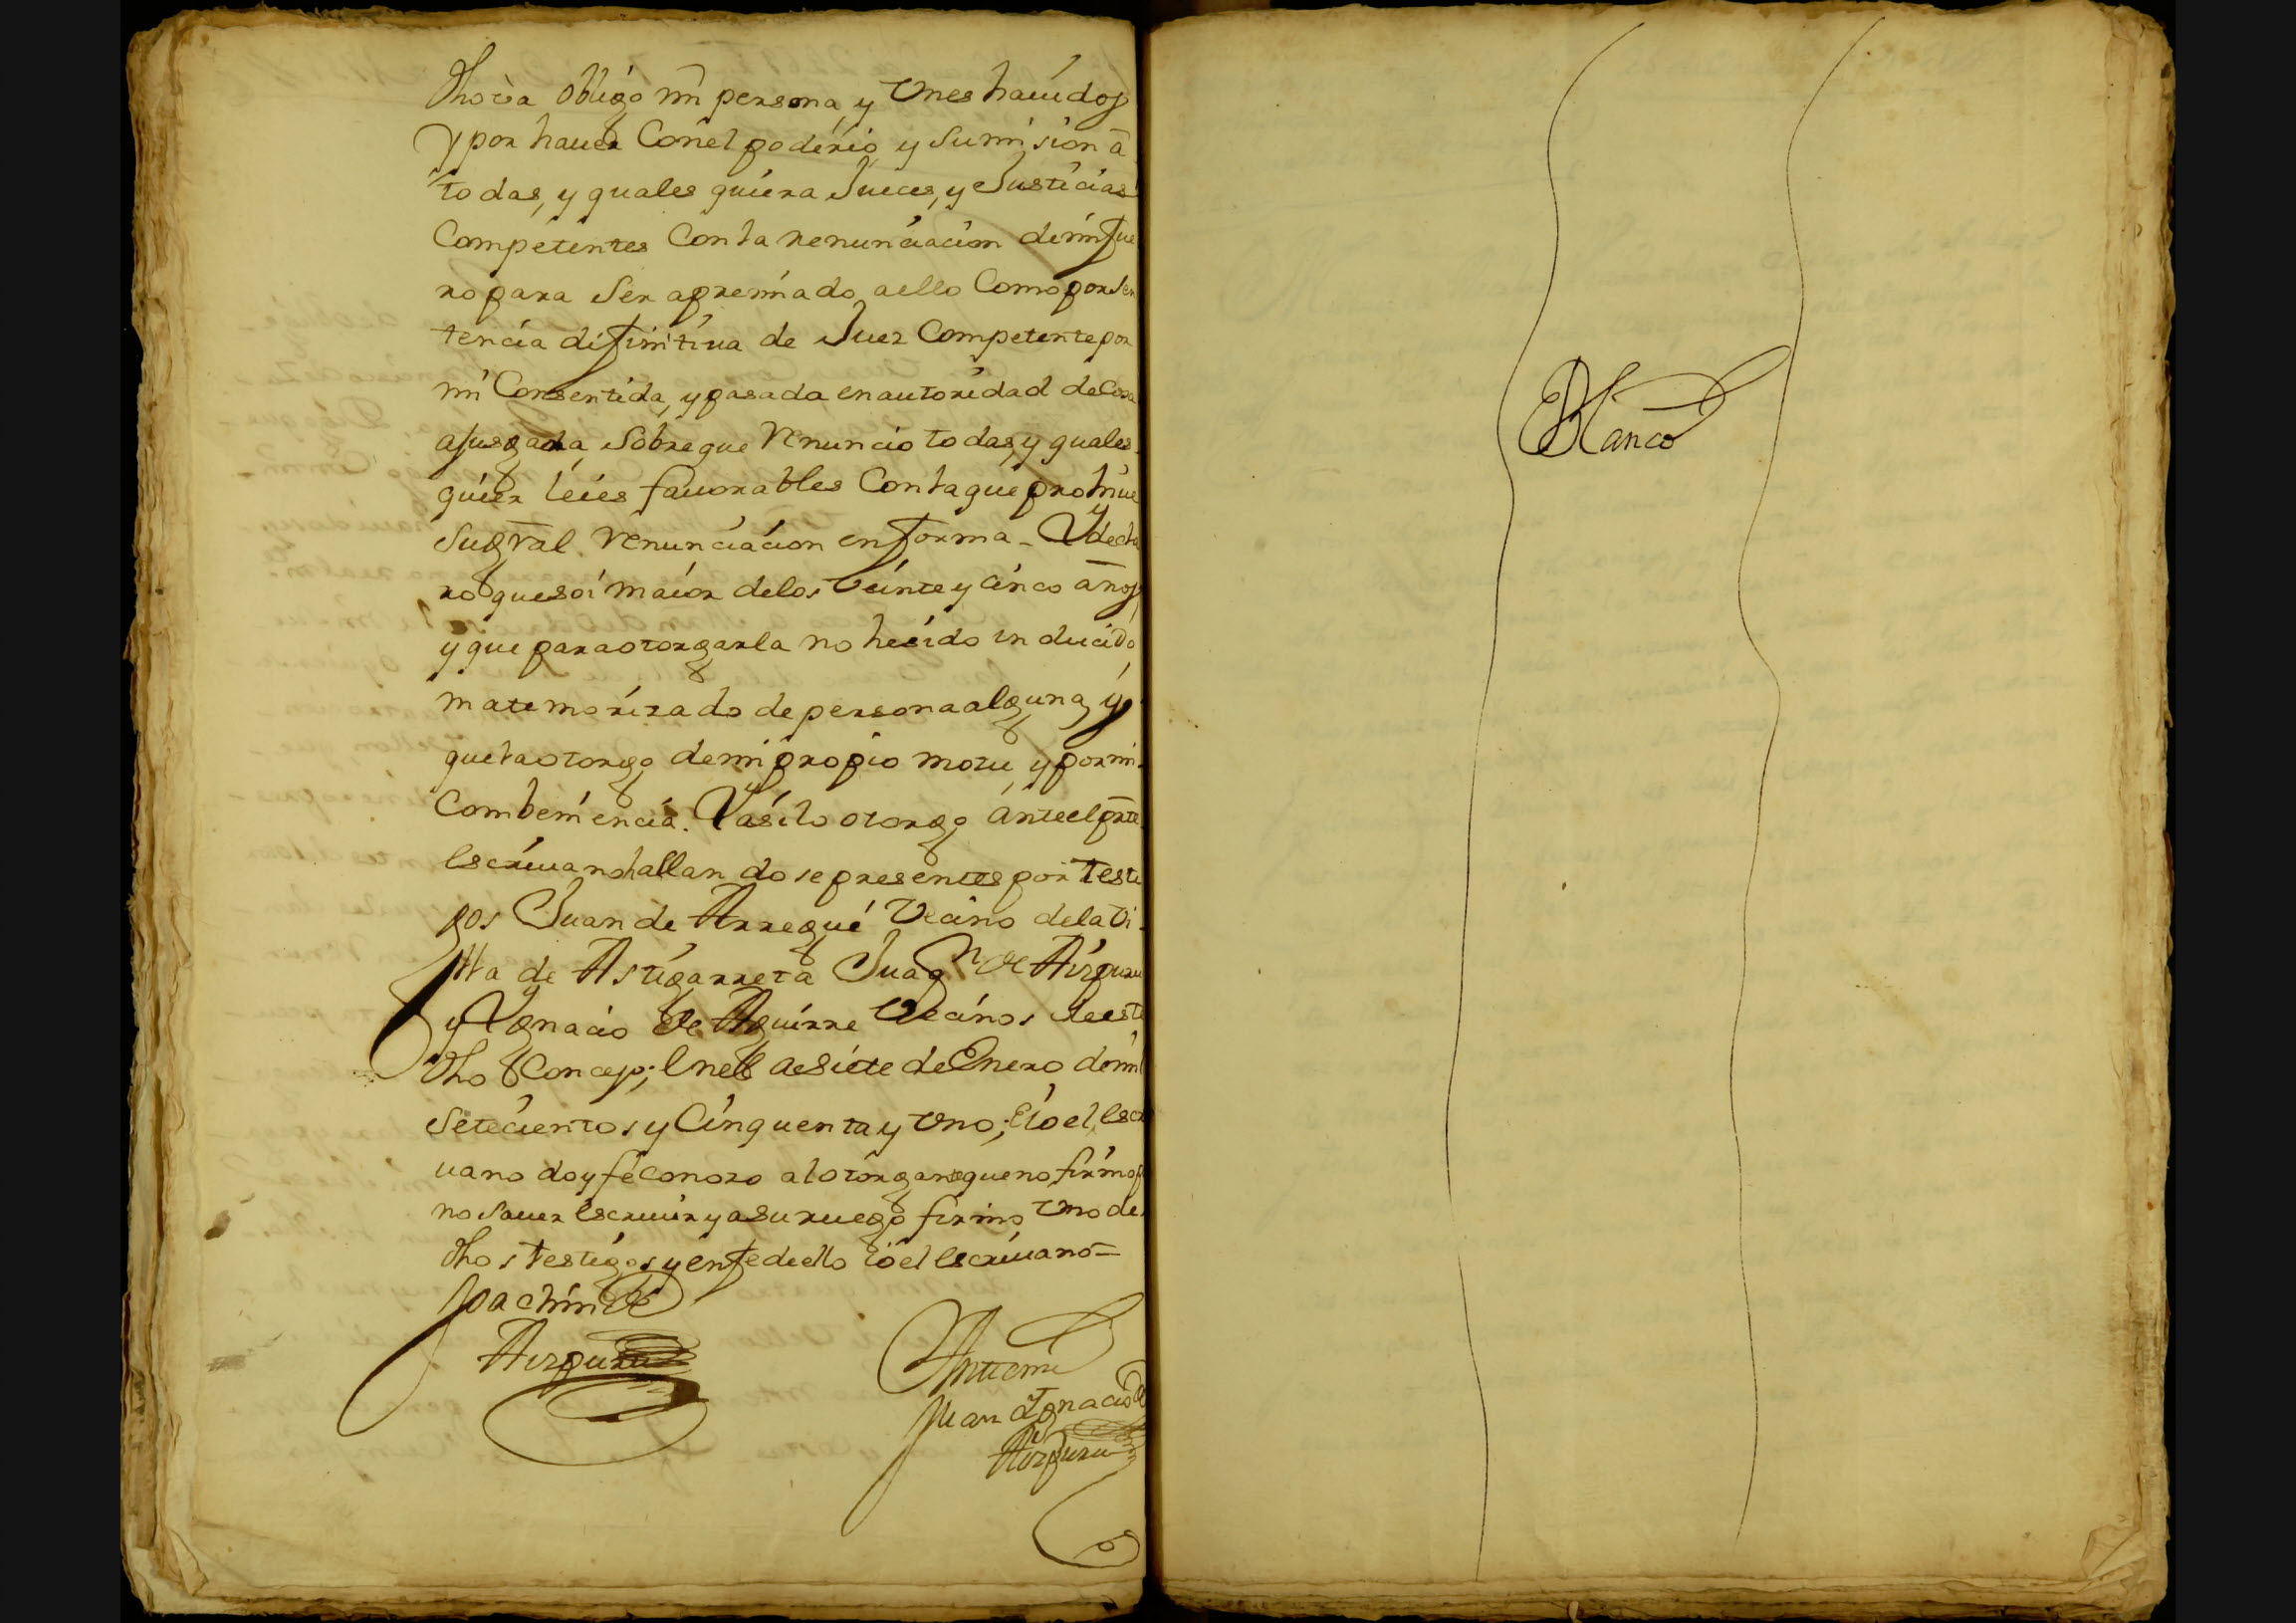 dhoàa obligo mi persona, y vnes hauidos
y por hauer Conel poderio, y sumision â
todas, y quales quiera Jueces, y Justicias
Competentes Con la renunciacion demi fue
ro para ser apremiado aello Como por sen
tencia difinitiua de Juez Competente por
mi Consentida, y pasada en autoridad de Cosa
ajusgada, sobre que renuncio todas, y quales
quier leies fauorables Con la que prohiue
su gral. renunciacion en forma - Y decla
ro que soi maior delos veinte y cinco años
y que para otorgarla no he sido inducido,
ni atemorizado de persona alguna, y
que la otorgo demi propio motu, y por mi
Combeniencia. Y asilo otorgo ante el prte.
escriuano hallandose presentes por testi
gos Juan de Arregui vecino dela vi
lla de Astigarreta Juaqn. de Aizpuru
y Ygnacio de Aguirre vecinos de este
dho Concejo; en el a siete de Enero de mil
setecientos y Cinquenta y vno; e io el escri
uano doy fe conozo al otorgante que no firmo p
no sauer escriuir y asu ruego firmo vno de
dhos testigos y enfe de ello io el escriuano =
Joachin de
Aizpuru
Antemi
Juan Ygnacio de
Aizpuru
Blanco